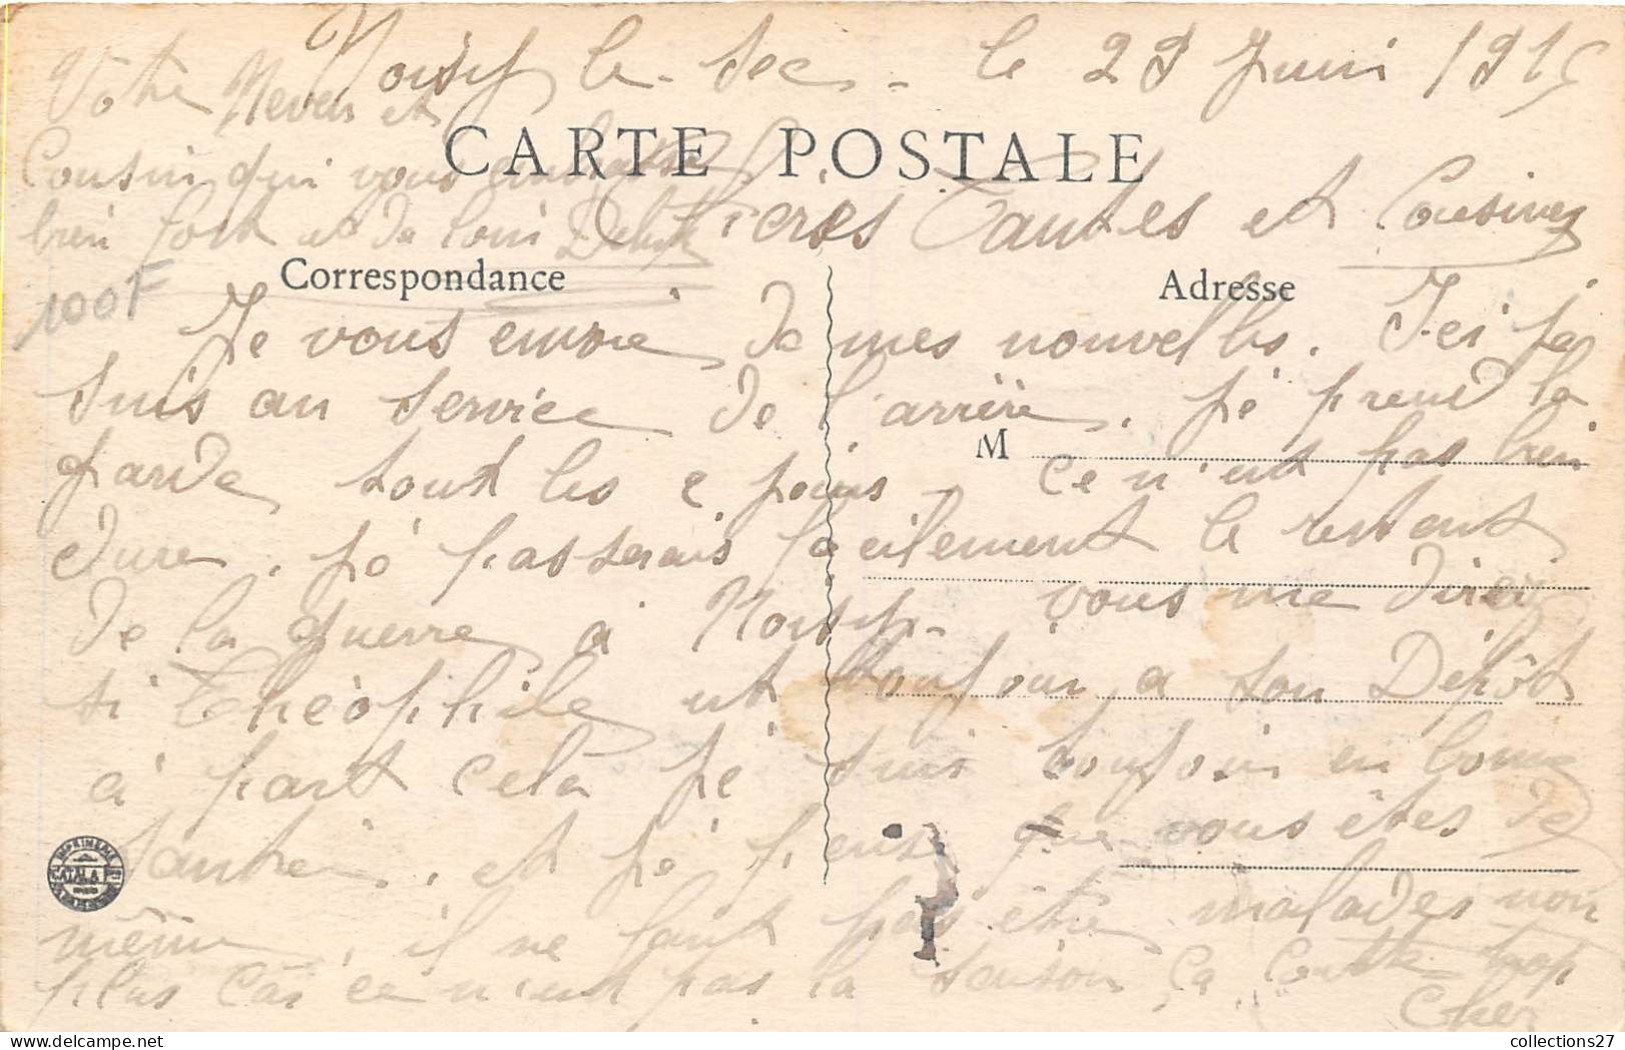 Noisy le-Sec - le 29 Juin 1915
CARTE POSTALE
Chères Tantes et Cousines
Correspondance
Adresse
Je vous envoie de mes nouvelles. Ici je
suis au service de l'arrière. je prend la
M
garde tout les 2 jours. Ce n'est pas bien
dure, je passerais facilement le restant
de la guerre à Noisy. vous me direz
si Théophile est toujour a son Dépôt
à part celà je suis toujour en bonne
santée, et je pense que vous êtes de
même, il ne faut pas être malades non
plus car ce n'est pas la saison ça coute trop
cher
Votre Neveu et
Cousin qui vous embrasse
bien fort et de loin
100F
IMPRIMERIE
CATALA F
collections27